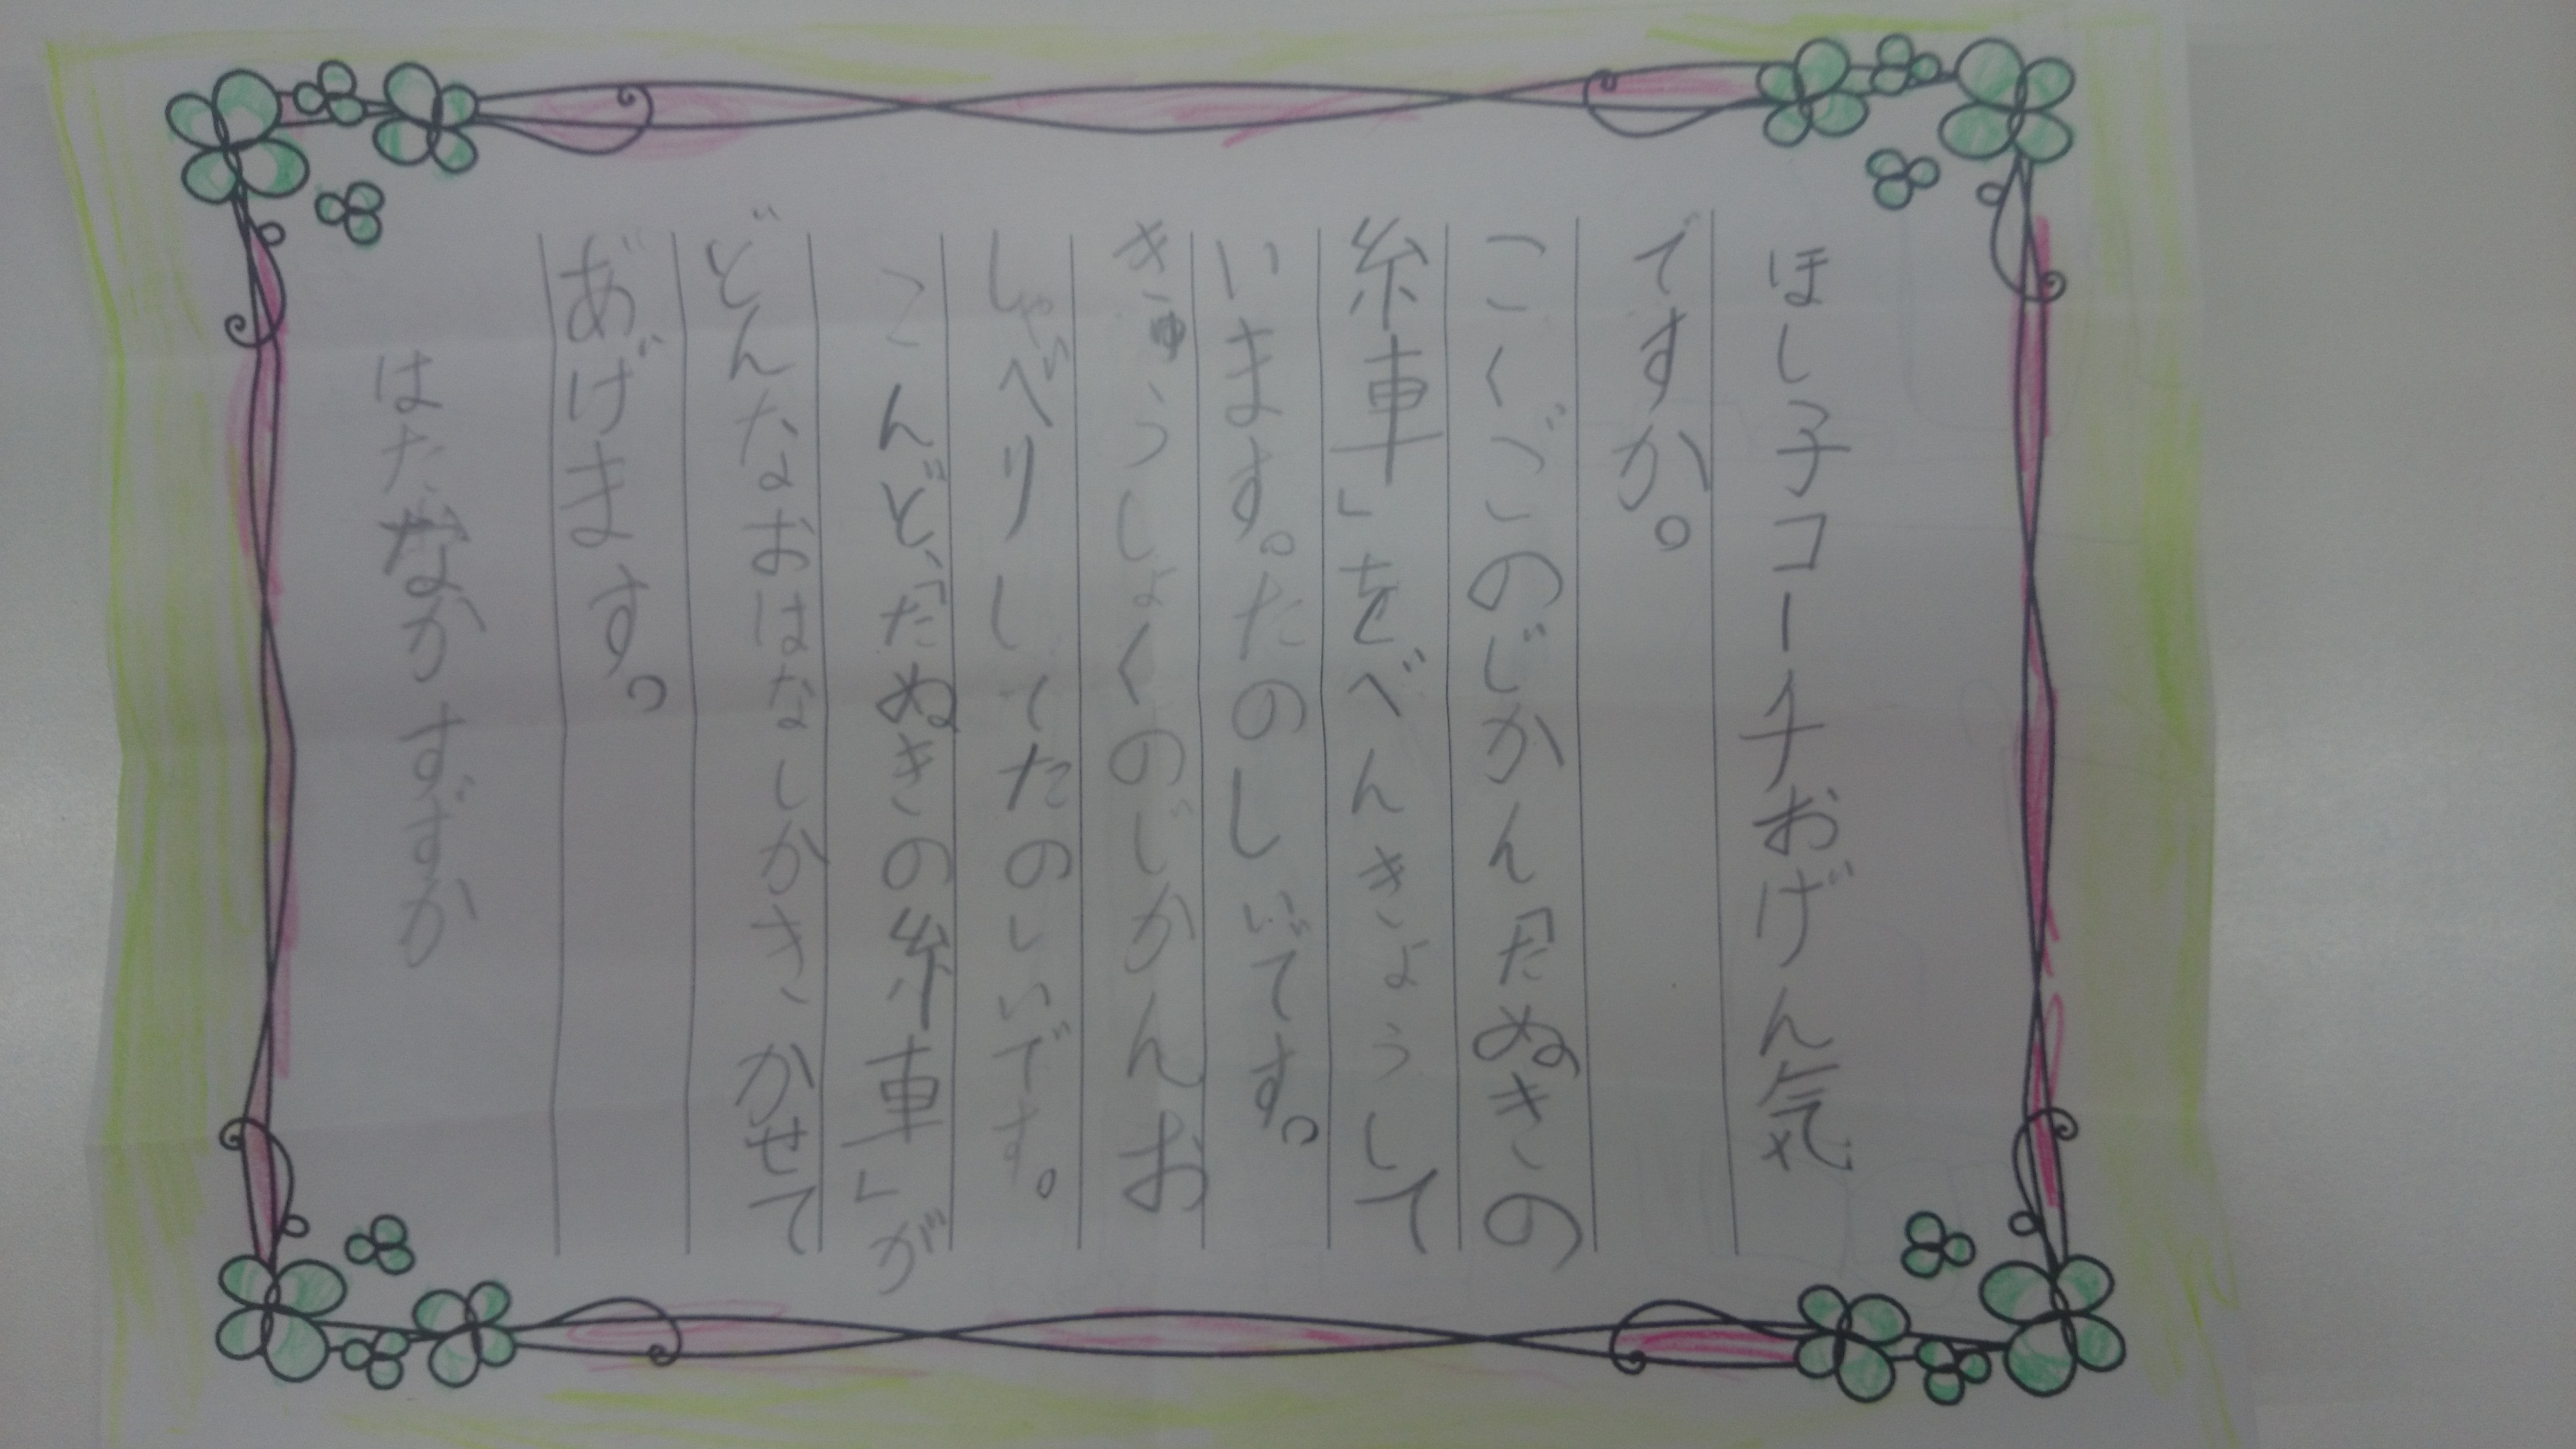 ほし子コーチおげん気
ですか。
こくごこのじかん「たぬきの
糸車」をべんきょうして
います。たのしいです。
きゅうしょくのじかんお
しゃべりしてたのしいです。
こんど、「たぬきの糸車」が
どんなおはなしかきかせて
あげます。
はたなかすずか